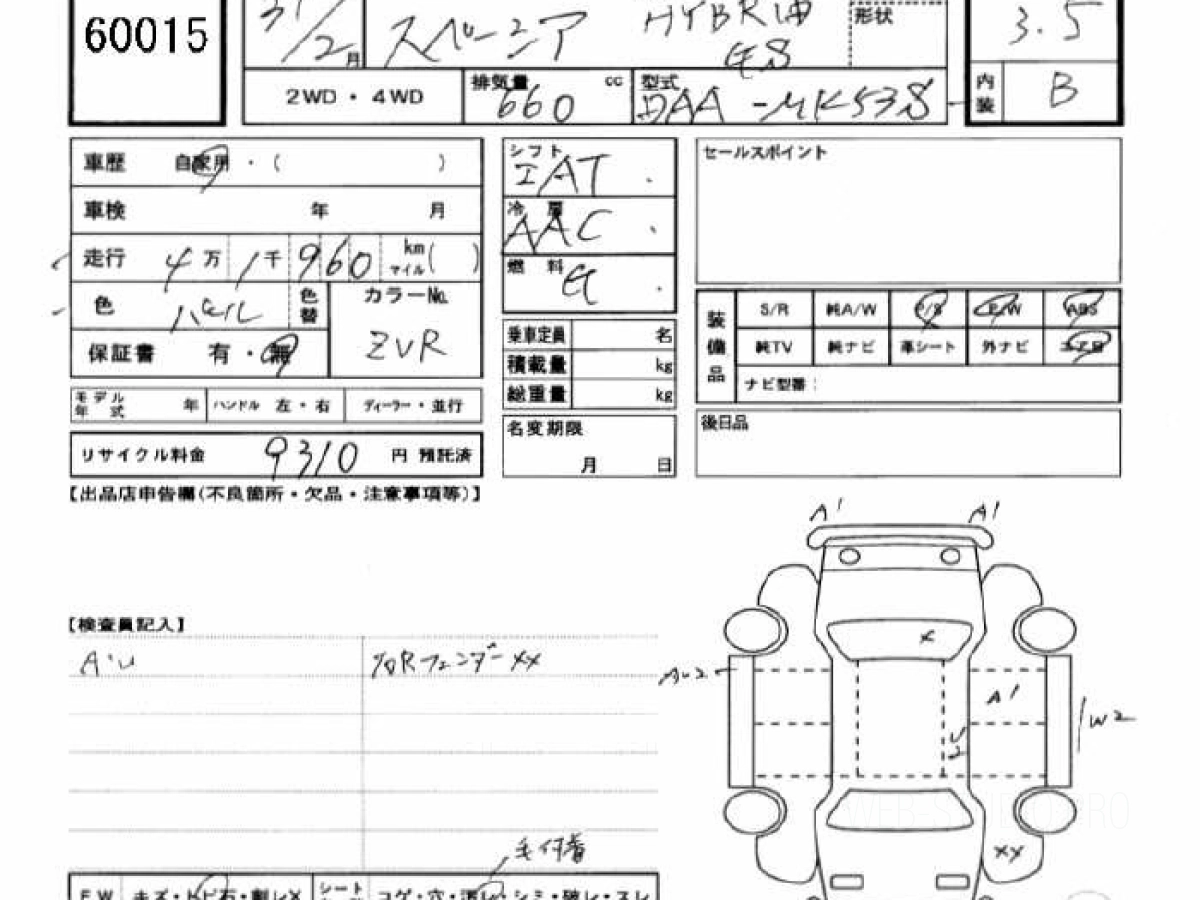 60015
31/2月
スペーシア
HYBRID
形状
3.5
2WD・4WD
排気量
cc
660
型式
DAA-MK53S
内装
B
車歴 自家用・( )
車検 年 月
走行 4万1千960 km マイル( )
色 パール
色替
カラーNo.
ZVR
保証書 有・無
モデル年式 年
ハンドル 左・右
ディーラー・並行
リサイクル料金 9310 円 預託済
シフト
IAT
冷房
AAC
燃料
G
乗車定員 名
積載量 kg
総重量 kg
名変期限
月 日
セールスポイント
装備品
S/R 純A/W P/S P/W ABS
純TV 純ナビ 革シート 外ナビ エアB
ナビ型番:
後日品
【出品店申告欄(不良箇所・欠品・注意事項等)】
【検査員記入】
A・U
Rフェンダーxx
A1
A1
x
AU2
A1
U2
W2
xx
毛付着
FW キズ・トビ石・割レX
シート
コゲ・穴・汚レ・シミ・破レ・スレ